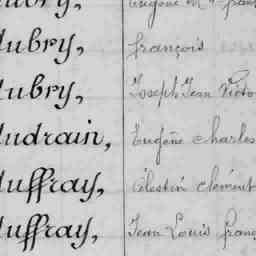 Eugène M
ubry, françois
ubry, Joseph Jean Victo
udrain, Eugène Charles
uffray, Célestin Clément
uffray, Jean Louis franç